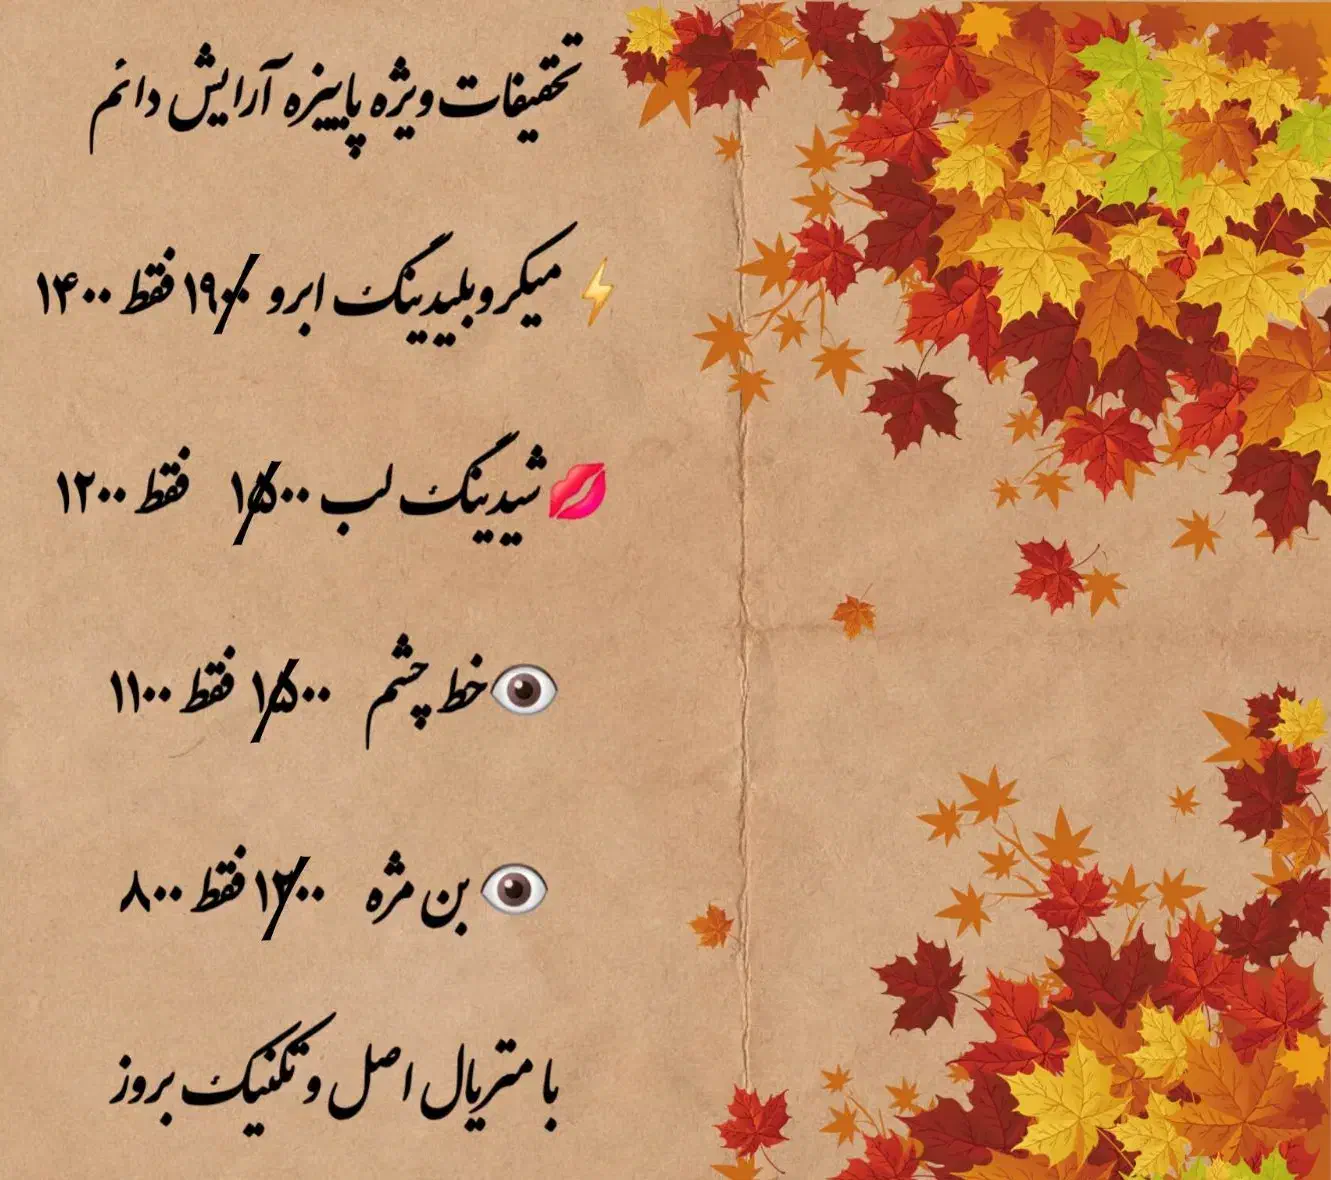 تخفیفات ویژه پاییزه آرایش دائم
⚡ میکروبلیدینگ ابرو ۱۹۰۰ فقط ۱۴۰۰
💋شیدینگ لب ۱۵۰۰ فقط ۱۲۰۰
👁خط چشم ۱۵۰۰ فقط ۱۱۰۰
👁 بن مژه ۱۲۰۰ فقط ۸۰۰
با متریال اصل و تکنیک بروز